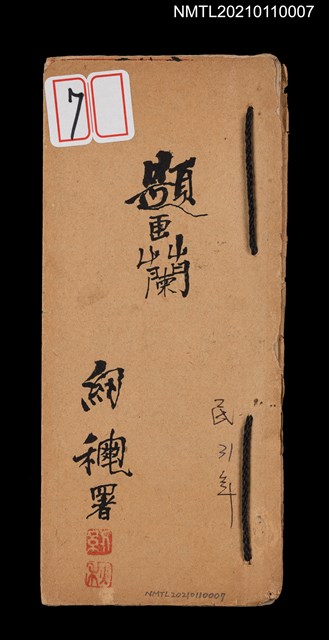 NMTL20210110007
7
題画蘭
紉穐署
民31年
NMTL20210110007